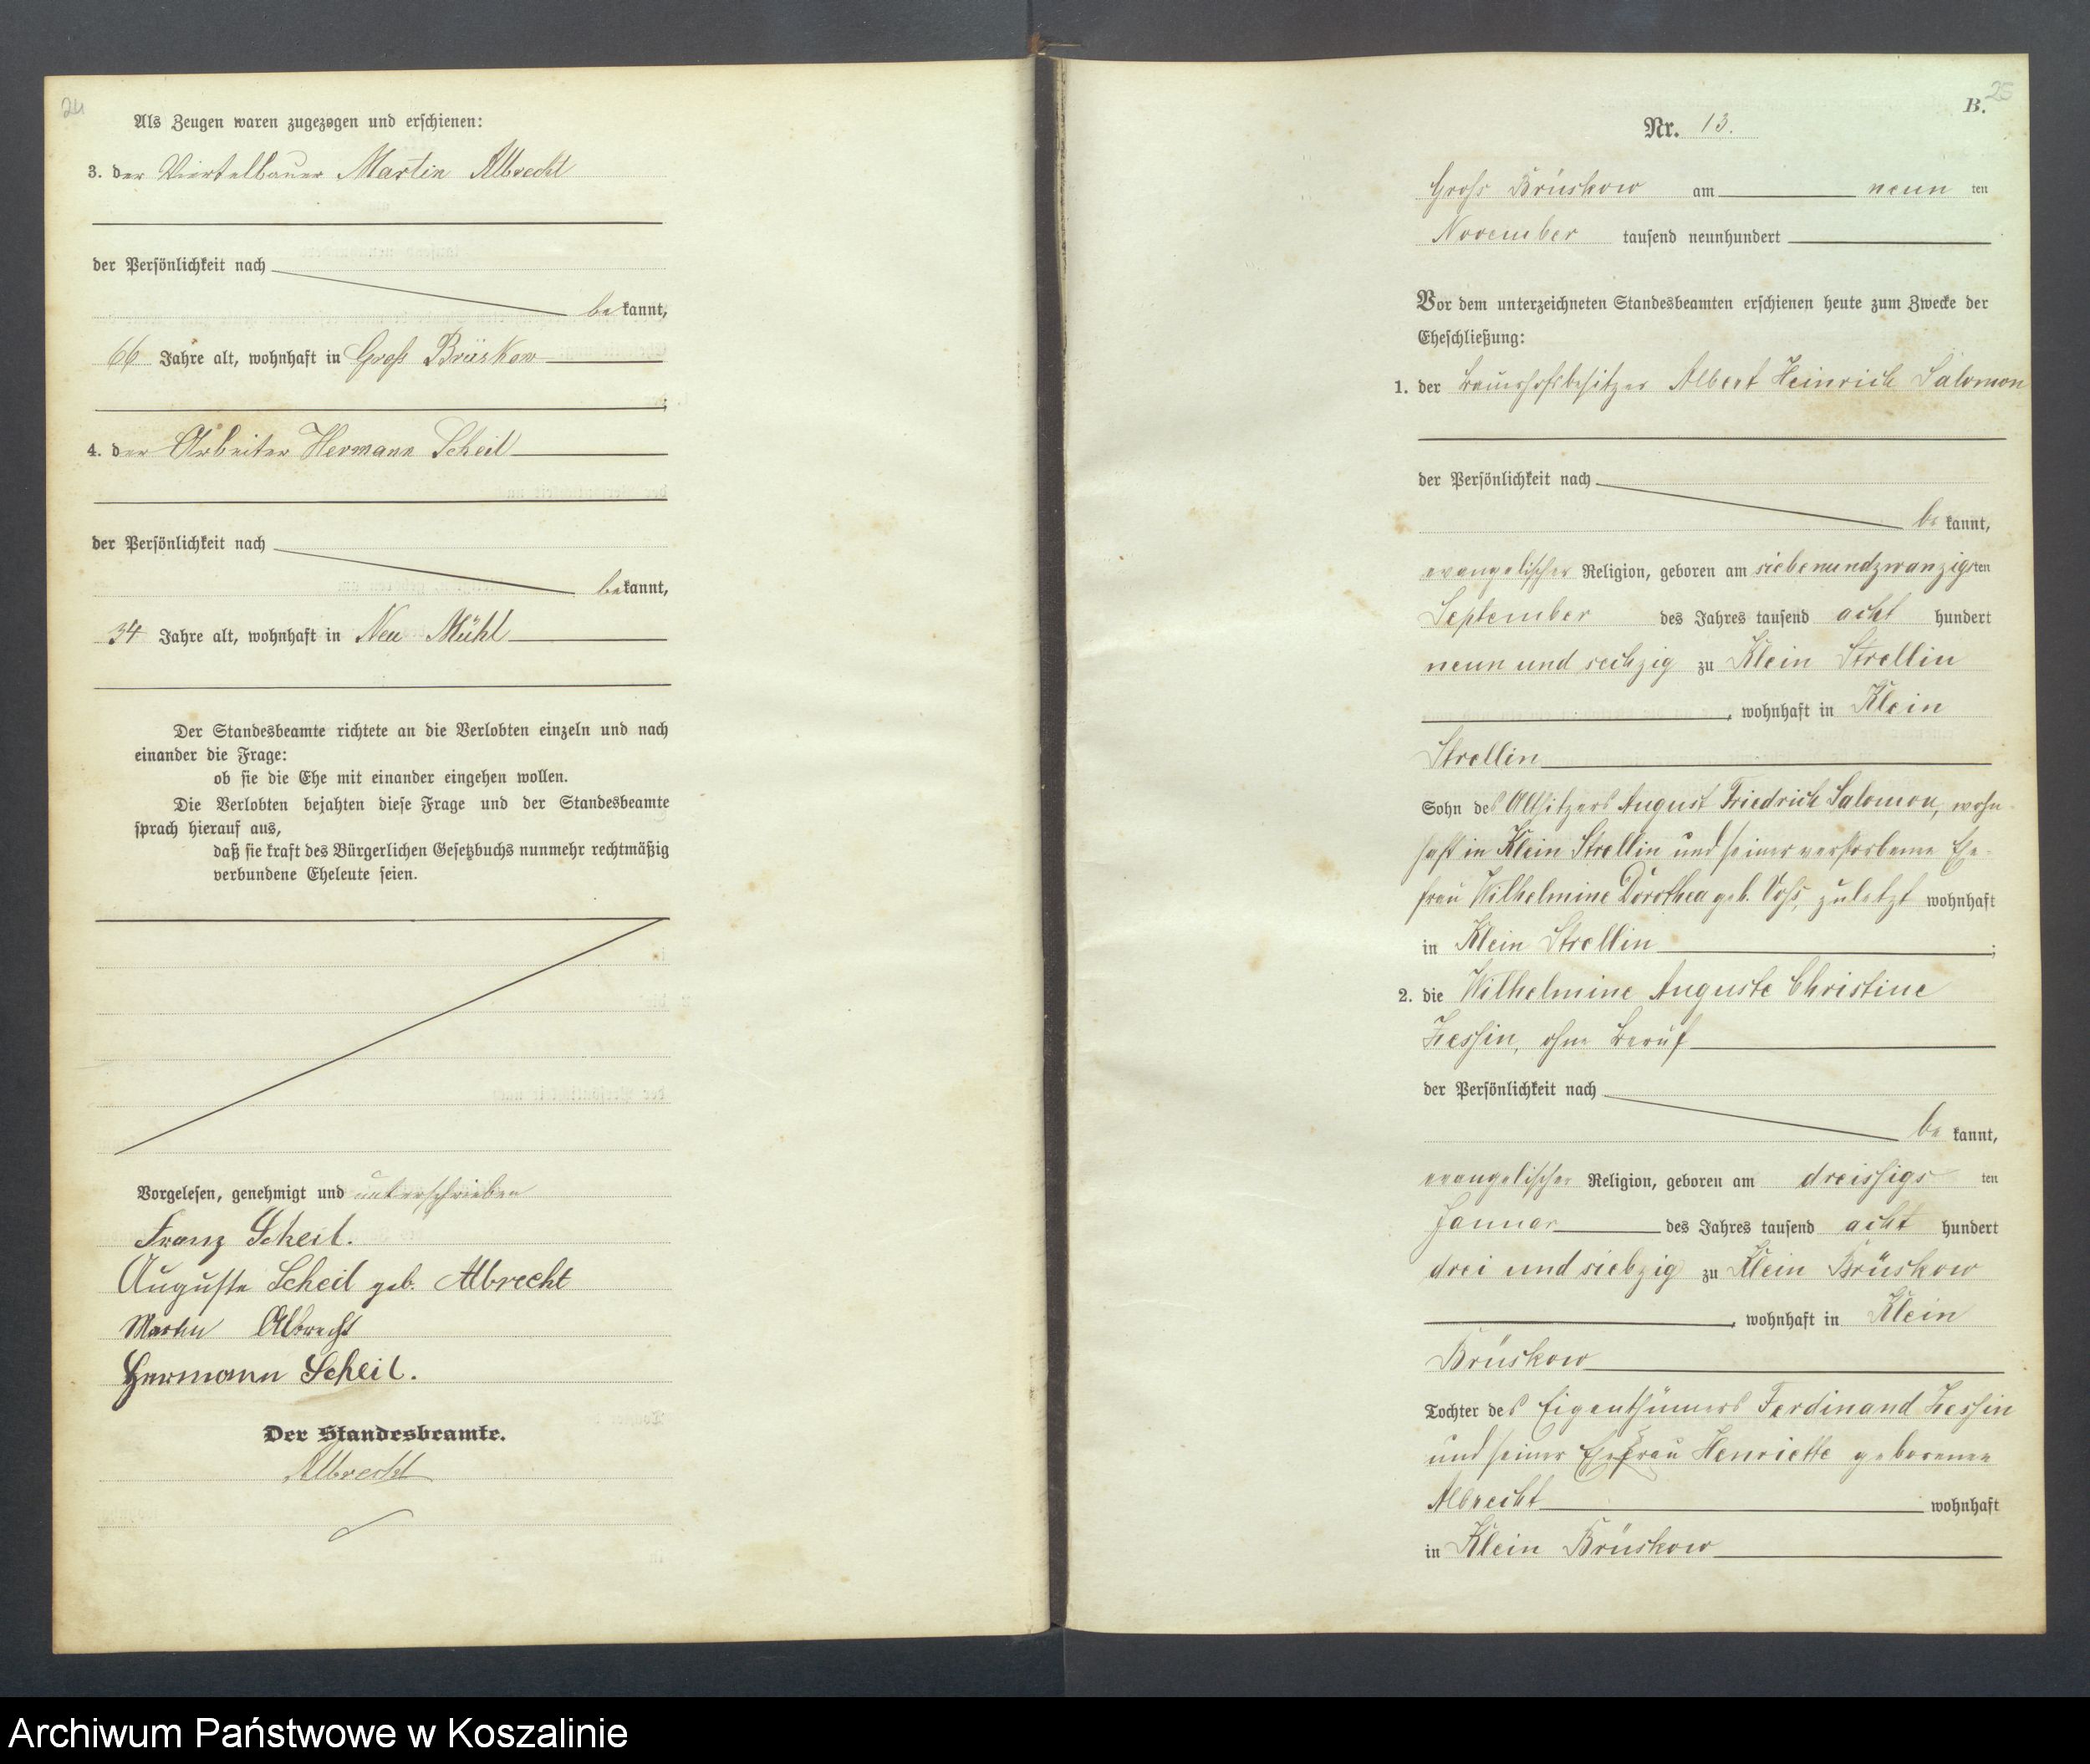 24
Als Zeugen waren zugezogen und erschienen:
3. der Viertelbauer Martin Albrecht
der Persönlichkeit nach
bekannt,
66 Jahre alt, wohnhaft in Groß Brüskow
;
4. der Arbeiter Hermann Scheil
der Persönlichkeit nach
bekannt,
34 Jahre alt, wohnhaft in Neu Mühl
Der Standesbeamte richtete an die Verlobten einzeln und nach
einander die Frage:
ob sie die Ehe mit einander eingehen wollen.
Die Verlobten bejahten diese Frage und der Standesbeamte
sprach hierauf aus,
daß sie kraft des Bürgerlichen Gesetzbuchs nunmehr rechtmäßig
verbundene Eheleute seien.
Vorgelesen, genehmigt und unterschrieben
Franz Scheil.
Auguste Scheil geb. Albrecht
Martin Albrecht
Hermann Scheil.
Der Standesbeamte.
Albrecht
25
B.
Nr. 13.
Gross Brüskow am neun ten
November tausend neunhundert
Vor dem unterzeichneten Standesbeamten erschienen heute zum Zwecke der
Eheschließung:
1. der Bauerhofsbesitzer Albert Heinrich Salomon
der Persönlichkeit nach
be kannt,
evangelischer Religion, geboren am siebenundzwanzigsten
September des Jahres tausend acht hundert
neun und sechzig zu Klein Strellin
, wohnhaft in Klein
Strellin
Sohn des Altsitzers August Friedrich Salomon, wohn-
haft in Klein Strellin und seiner verstorbene Ehe-
frau Wilhelmine Dorothea geb. Voss, zuletzt wohnhaft
in Klein Strellin ;
2. die Wilhelmine Auguste Christine
Zessin, ohne Beruf
der Persönlichkeit nach
be kannt,
evangelischer Religion, geboren am dreissigs ten
Januar des Jahres tausend acht hundert
drei und siebzig zu Klein Brüskow
, wohnhaft in Klein
Brüskow
Tochter des Eigenthümers Ferdinand Zessin
und seiner Ehefrau Henriette geborenen
Albrecht wohnhaft
in Klein Brüskow
Archiwum Państwowe w Koszalinie